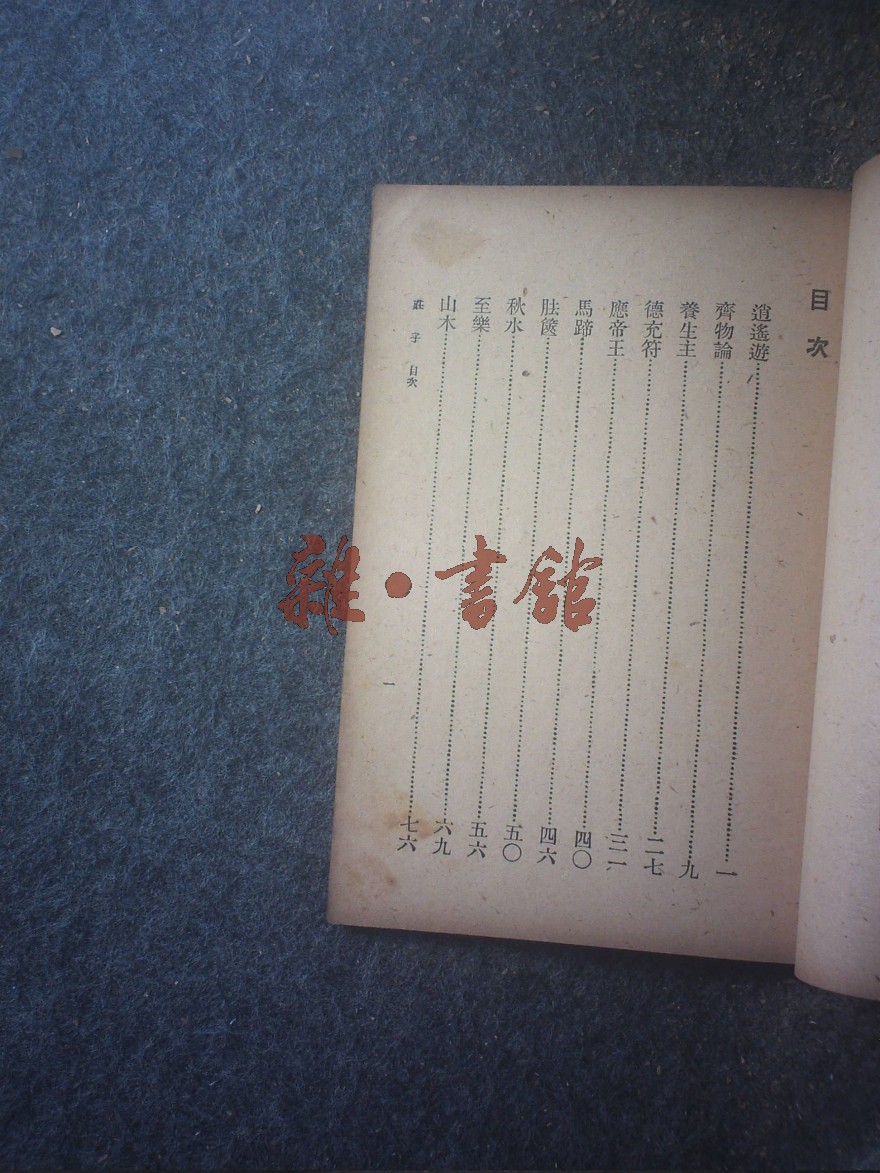 目次
逍遙遊……一
齊物論……九
養生主……二七
德充符……三一
應帝王……四〇
馬蹄……四六
胠篋……五〇
秋水……五六
至樂……六九
山木……七六
莊子 目次 一
雜·書館